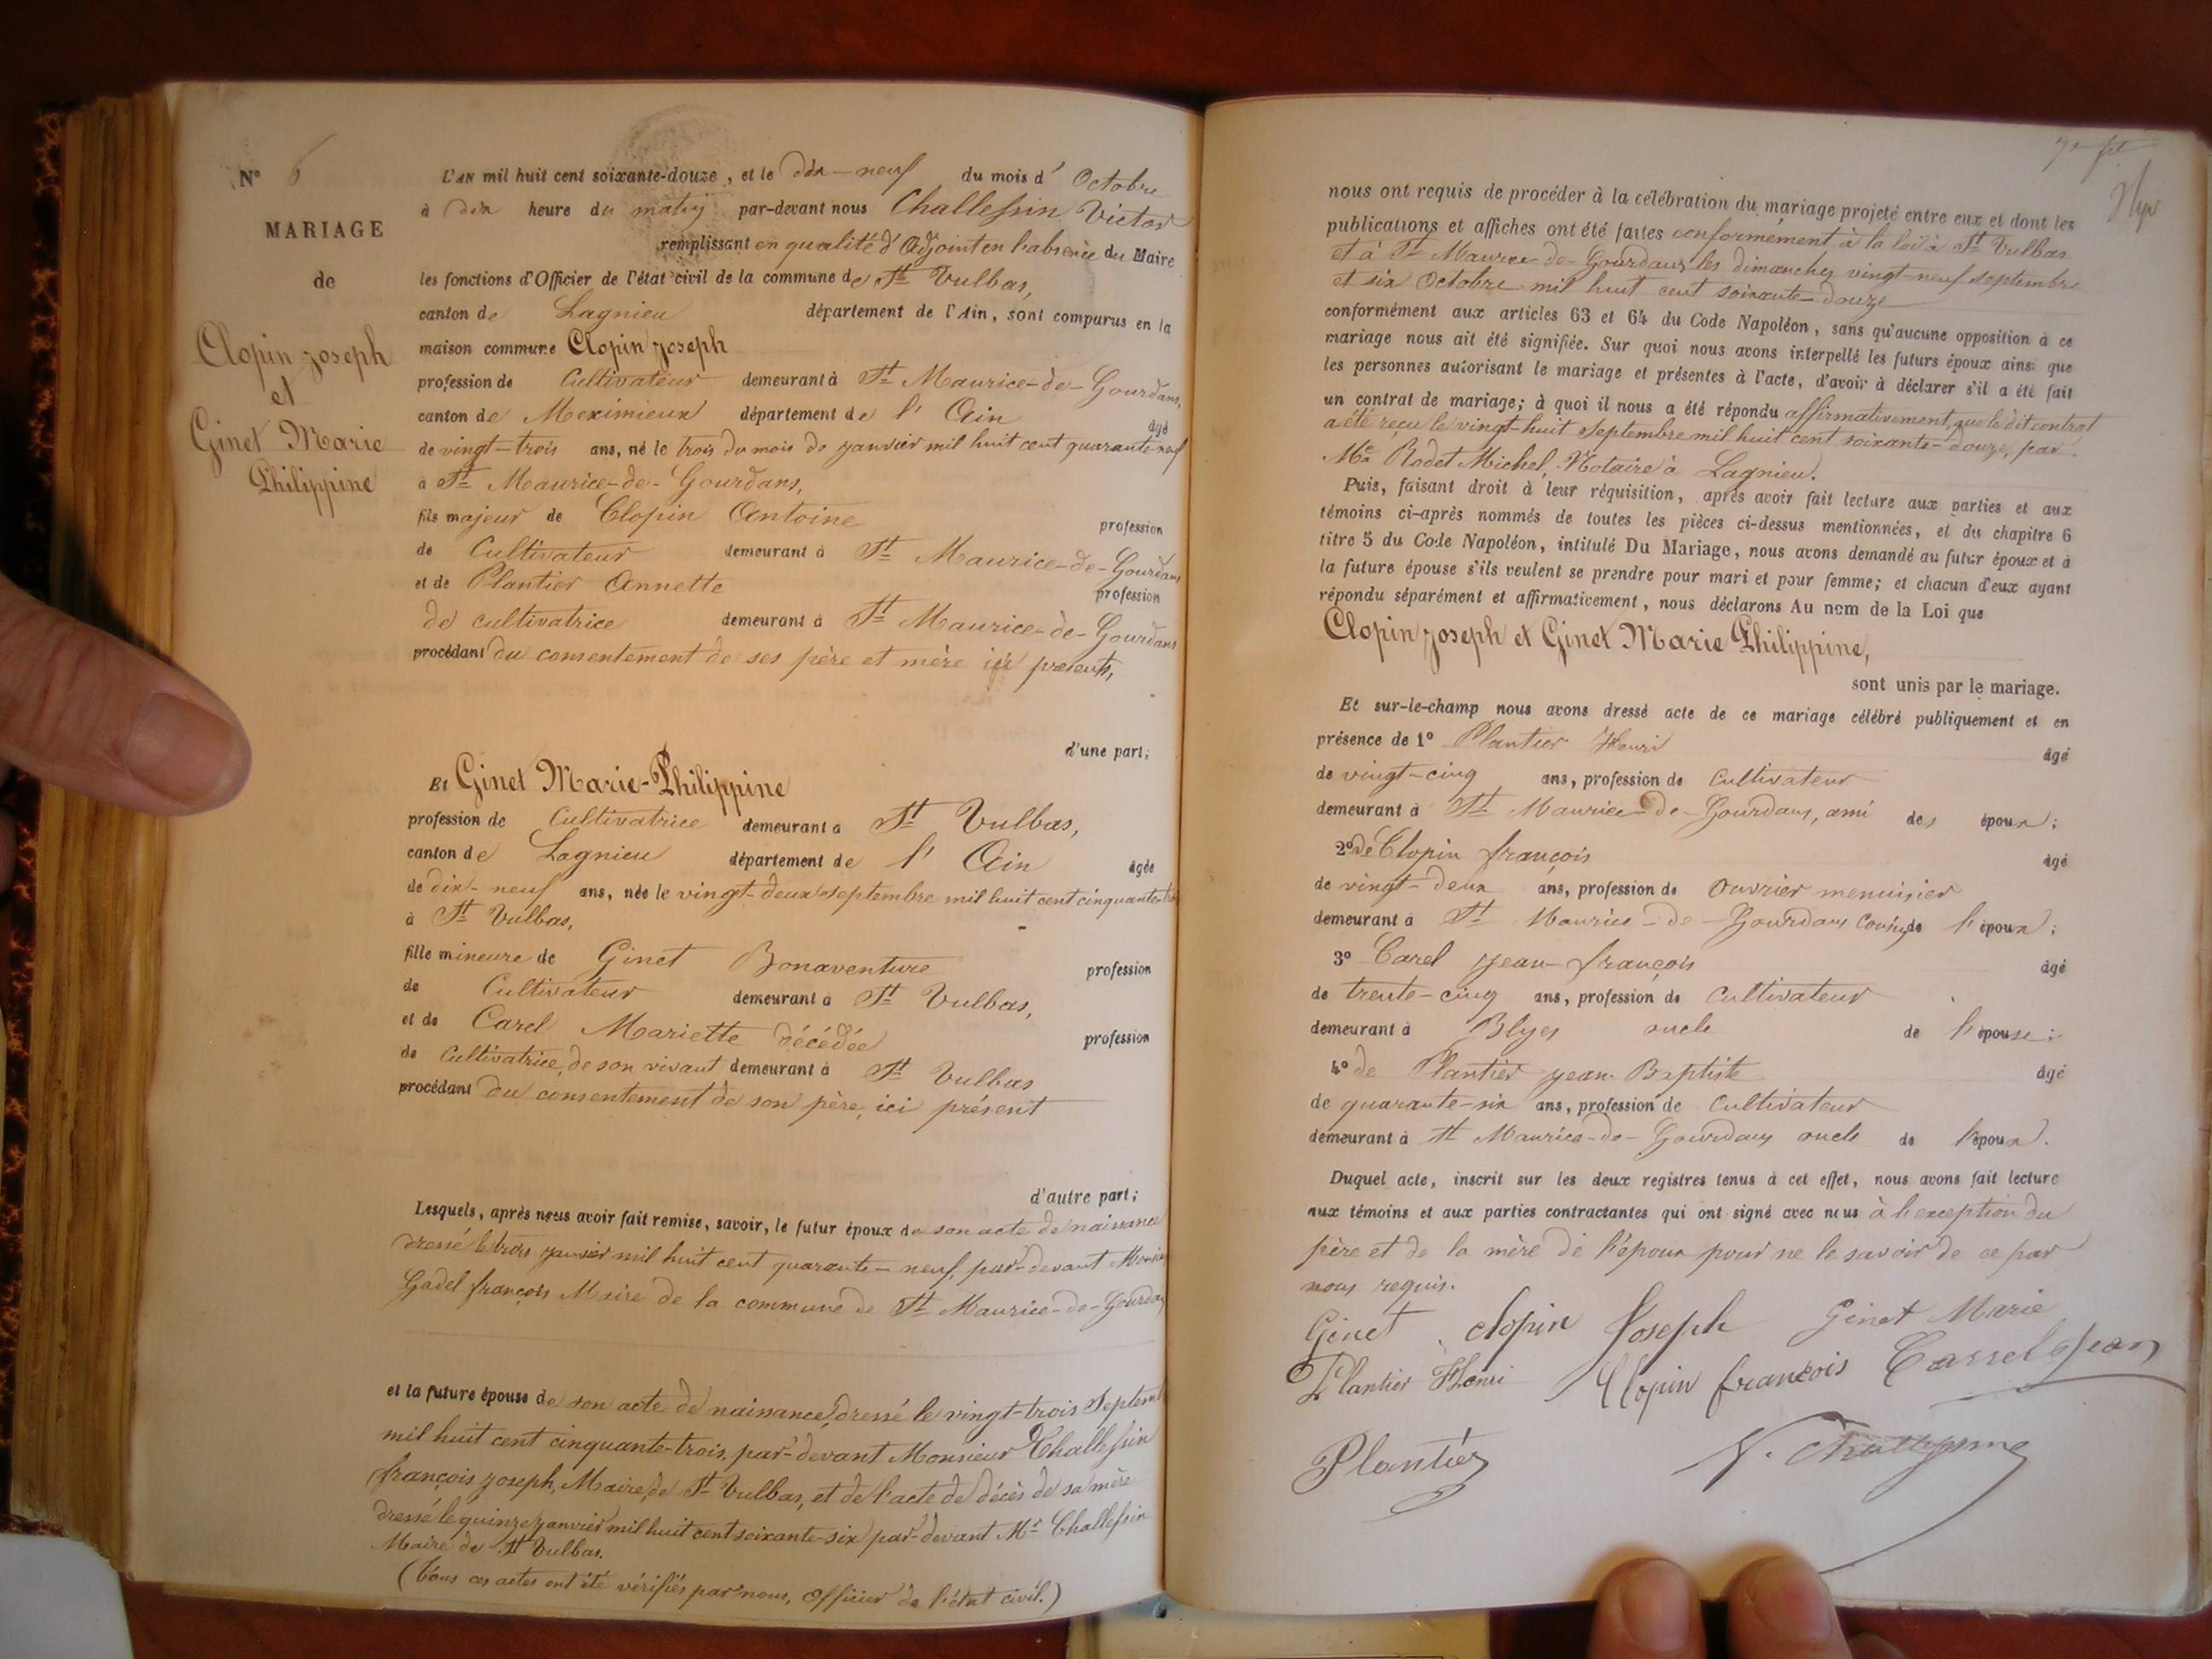 N° 6
MARIAGE
de
Clopin Joseph
et
Ginet Marie
Philippine
L'AN mil huit cent soixante-douze, et le dix-neuf du mois d' Octobre
à dix heure du matin par-devant nous Challessin Victor
remplissant en qualité d'Adjoint en l'absence du Maire
les fonctions d'Officier de l'état civil de la commune de St Vulbas,
canton de Lagnieu département de l'Ain, sont comparus en la
maison commune Clopin Joseph
profession de Cultivateur demeurant à St Maurice-de-Gourdans,
canton de Meximieux département de l' Ain âgé
de vingt-trois ans, né le trois du mois de janvier mil huit cent quarante-neuf
à St Maurice-de-Gourdans,
fils majeur de Clopin Antoine profession
de Cultivateur demeurant à St Maurice-de-Gourdans
et de Plantier Annette profession
de cultivatrice demeurant à St Maurice-de-Gourdans
procédant du consentement de ses père et mère ici présents,
d'une part;
Et Ginet Marie-Philippine
profession de Cultivatrice demeurant à St Vulbas,
canton de Lagnieu département de l' Ain âgée
de dix-neuf ans, née le vingt-deux septembre mil huit cent cinquante-trois
à St Vulbas,
fille mineure de Ginet Bonaventure profession
de Cultivateur demeurant à St Vulbas,
et de Carel Mariette décédée profession
de Cultivatrice, de son vivant demeurant à St Vulbas
procédant du consentement de son père, ici présent
d'autre part;
Lesquels, après nous avoir fait remise, savoir, le futur époux de son acte de naissance
dressé le trois janvier mil huit cent quarante-neuf, par-devant
Gadel françois Maire de la commune de St Maurice-de-Gourdans
et la future épouse de son acte de naissance, dressé le vingt-trois Septembre
mil huit cent cinquante-trois, par-devant Monsieur Challessin
françois Joseph, Maire de St Vulbas, et de l'acte de décès de sa mère
dressé le quinze janvier mil huit cent soixante-six par-devant Mr Challessin
Maire de St Vulbas.
(Tous ces actes ont été vérifiés par nous, Officier de l'état civil.)
nous ont requis de procéder à la célébration du mariage projeté entre eux et dont les
publications et affiches ont été faites conformément à la loi à St Vulbas
et à St Maurice-de-Gourdans les dimanches vingt-neuf septembre
et six Octobre mil huit cent soixante-douze
conformément aux articles 63 et 64 du Code Napoléon, sans qu'aucune opposition à ce
mariage nous ait été signifiée. Sur quoi nous avons interpellé les futurs époux ainsi que
les personnes autorisant le mariage et présentes à l'acte, d'avoir à déclarer s'il a été fait
un contrat de mariage; à quoi il nous a été répondu affirmativement, que le dit contrat
a été reçu le vingt-huit Septembre mil huit cent soixante-douze, par
Me Rodet Michel, Notaire à Lagnieu.
Puis, faisant droit à leur réquisition, après avoir fait lecture aux parties et aux
témoins ci-après nommés de toutes les pièces ci-dessus mentionnées, et du chapitre 6
titre 5 du Code Napoléon, intitulé Du Mariage, nous avons demandé au futur époux et à
la future épouse s'ils veulent se prendre pour mari et pour femme; et chacun d'eux ayant
répondu séparément et affirmativement, nous déclarons Au nom de la Loi que
Clopin Joseph et Ginet Marie Philippine,
sont unis par le mariage.
Et sur-le-champ nous avons dressé acte de ce mariage célébré publiquement et en
présence de 1° Plantier Henri âgé
de vingt-cinq ans, profession de Cultivateur
demeurant à St Maurice-de-Gourdans, ami des époux;
2° de Clopin françois âgé
de vingt-deux ans, profession de Ouvrier menuisier
demeurant à St Maurice-de-Gourdans cousin de l'époux;
3° Carel Jean-françois âgé
de trente-cinq ans, profession de Cultivateur
demeurant à Blyes oncle de l'épouse;
4° de Plantier Jean-Baptiste âgé
de quarante-six ans, profession de Cultivateur
demeurant à St Maurice-de-Gourdans oncle de l'époux.
Duquel acte, inscrit sur les deux registres tenus à cet effet, nous avons fait lecture
aux témoins et aux parties contractantes qui ont signé avec nous à l'exception du
père et de la mère de l'époux pour ne le savoir de ce par
nous requis.
Ginet Clopin Joseph Ginet Marie
Plantier Henri Clopin françois Carrel Jean
Plantier